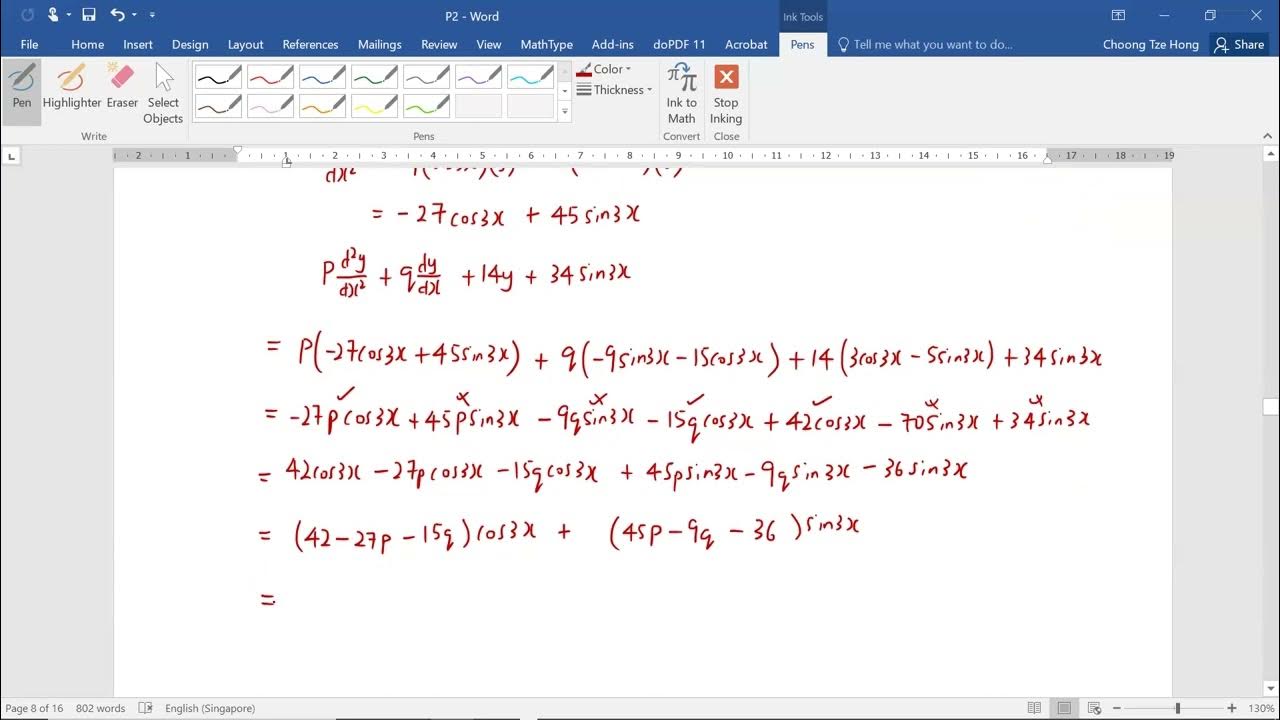 P2 - Word
Ink Tools
File Home Insert Design Layout References Mailings Review View MathType Add-ins doPDF 11 Acrobat Pens Tell me what you want to do... Choong Tze Hong Share
Pen Highlighter Eraser Select Objects
Color
Thickness
Ink to Math
Stop Inking
Write Pens Convert Close
2 1 1 2 3 4 5 6 7 8 9 10 11 12 13 14 15 16 17 18 19
dx²
= -27cos3x + 45sin3x
p d²y/dx² + q dy/dx + 14y + 34sin3x
= p(-27cos3x + 45sin3x) + q(-9sin3x - 15cos3x) + 14(3cos3x - 5sin3x) + 34sin3x
= -27pcos3x + 45psin3x - 9qsin3x - 15qcos3x + 42cos3x - 70sin3x + 34sin3x
= 42cos3x - 27pcos3x - 15qcos3x + 45psin3x - 9qsin3x - 36sin3x
= (42 - 27p - 15q)cos3x + (45p - 9q - 36)sin3x
=
Page 8 of 16 802 words English (Singapore) 130%